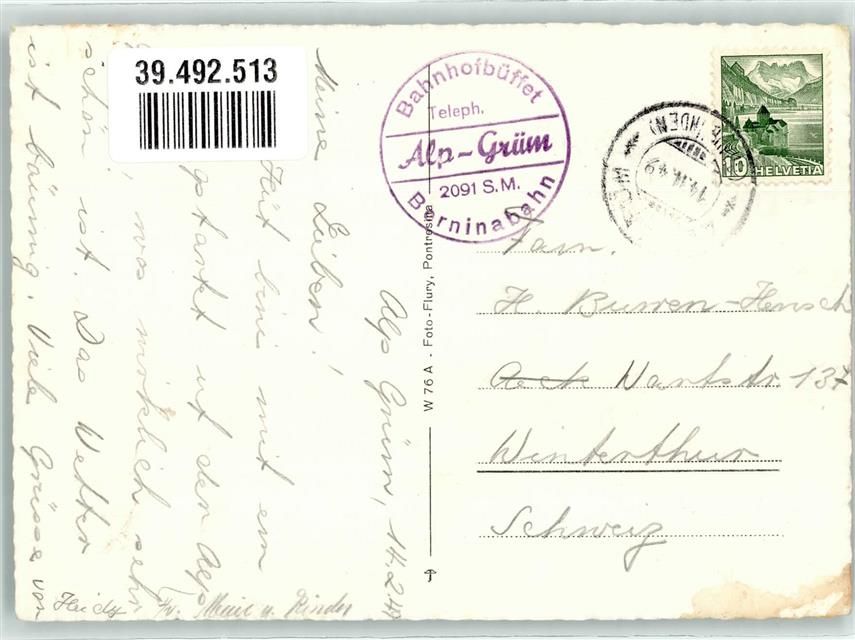 39.492.513
Bahnhofbüffet
Teleph.
Alp-Grüm
2091 S.M.
Berninabahn
10
HELVETIA
W 76 A - Foto-Flury, Pontresina
Alp Grüm, 14.2.49
Meine Lieben!
Heut bini mit em
gstartet uf der Alp
was wirklich sehr
schön ist. Das Wetter
ist bäumig. Viele Grüsse von
Heidy
Fr. Meier u. Kinder
Fam.
H. Buwen-Hensch
Wartstr. 137
Winterthur
Schweiz